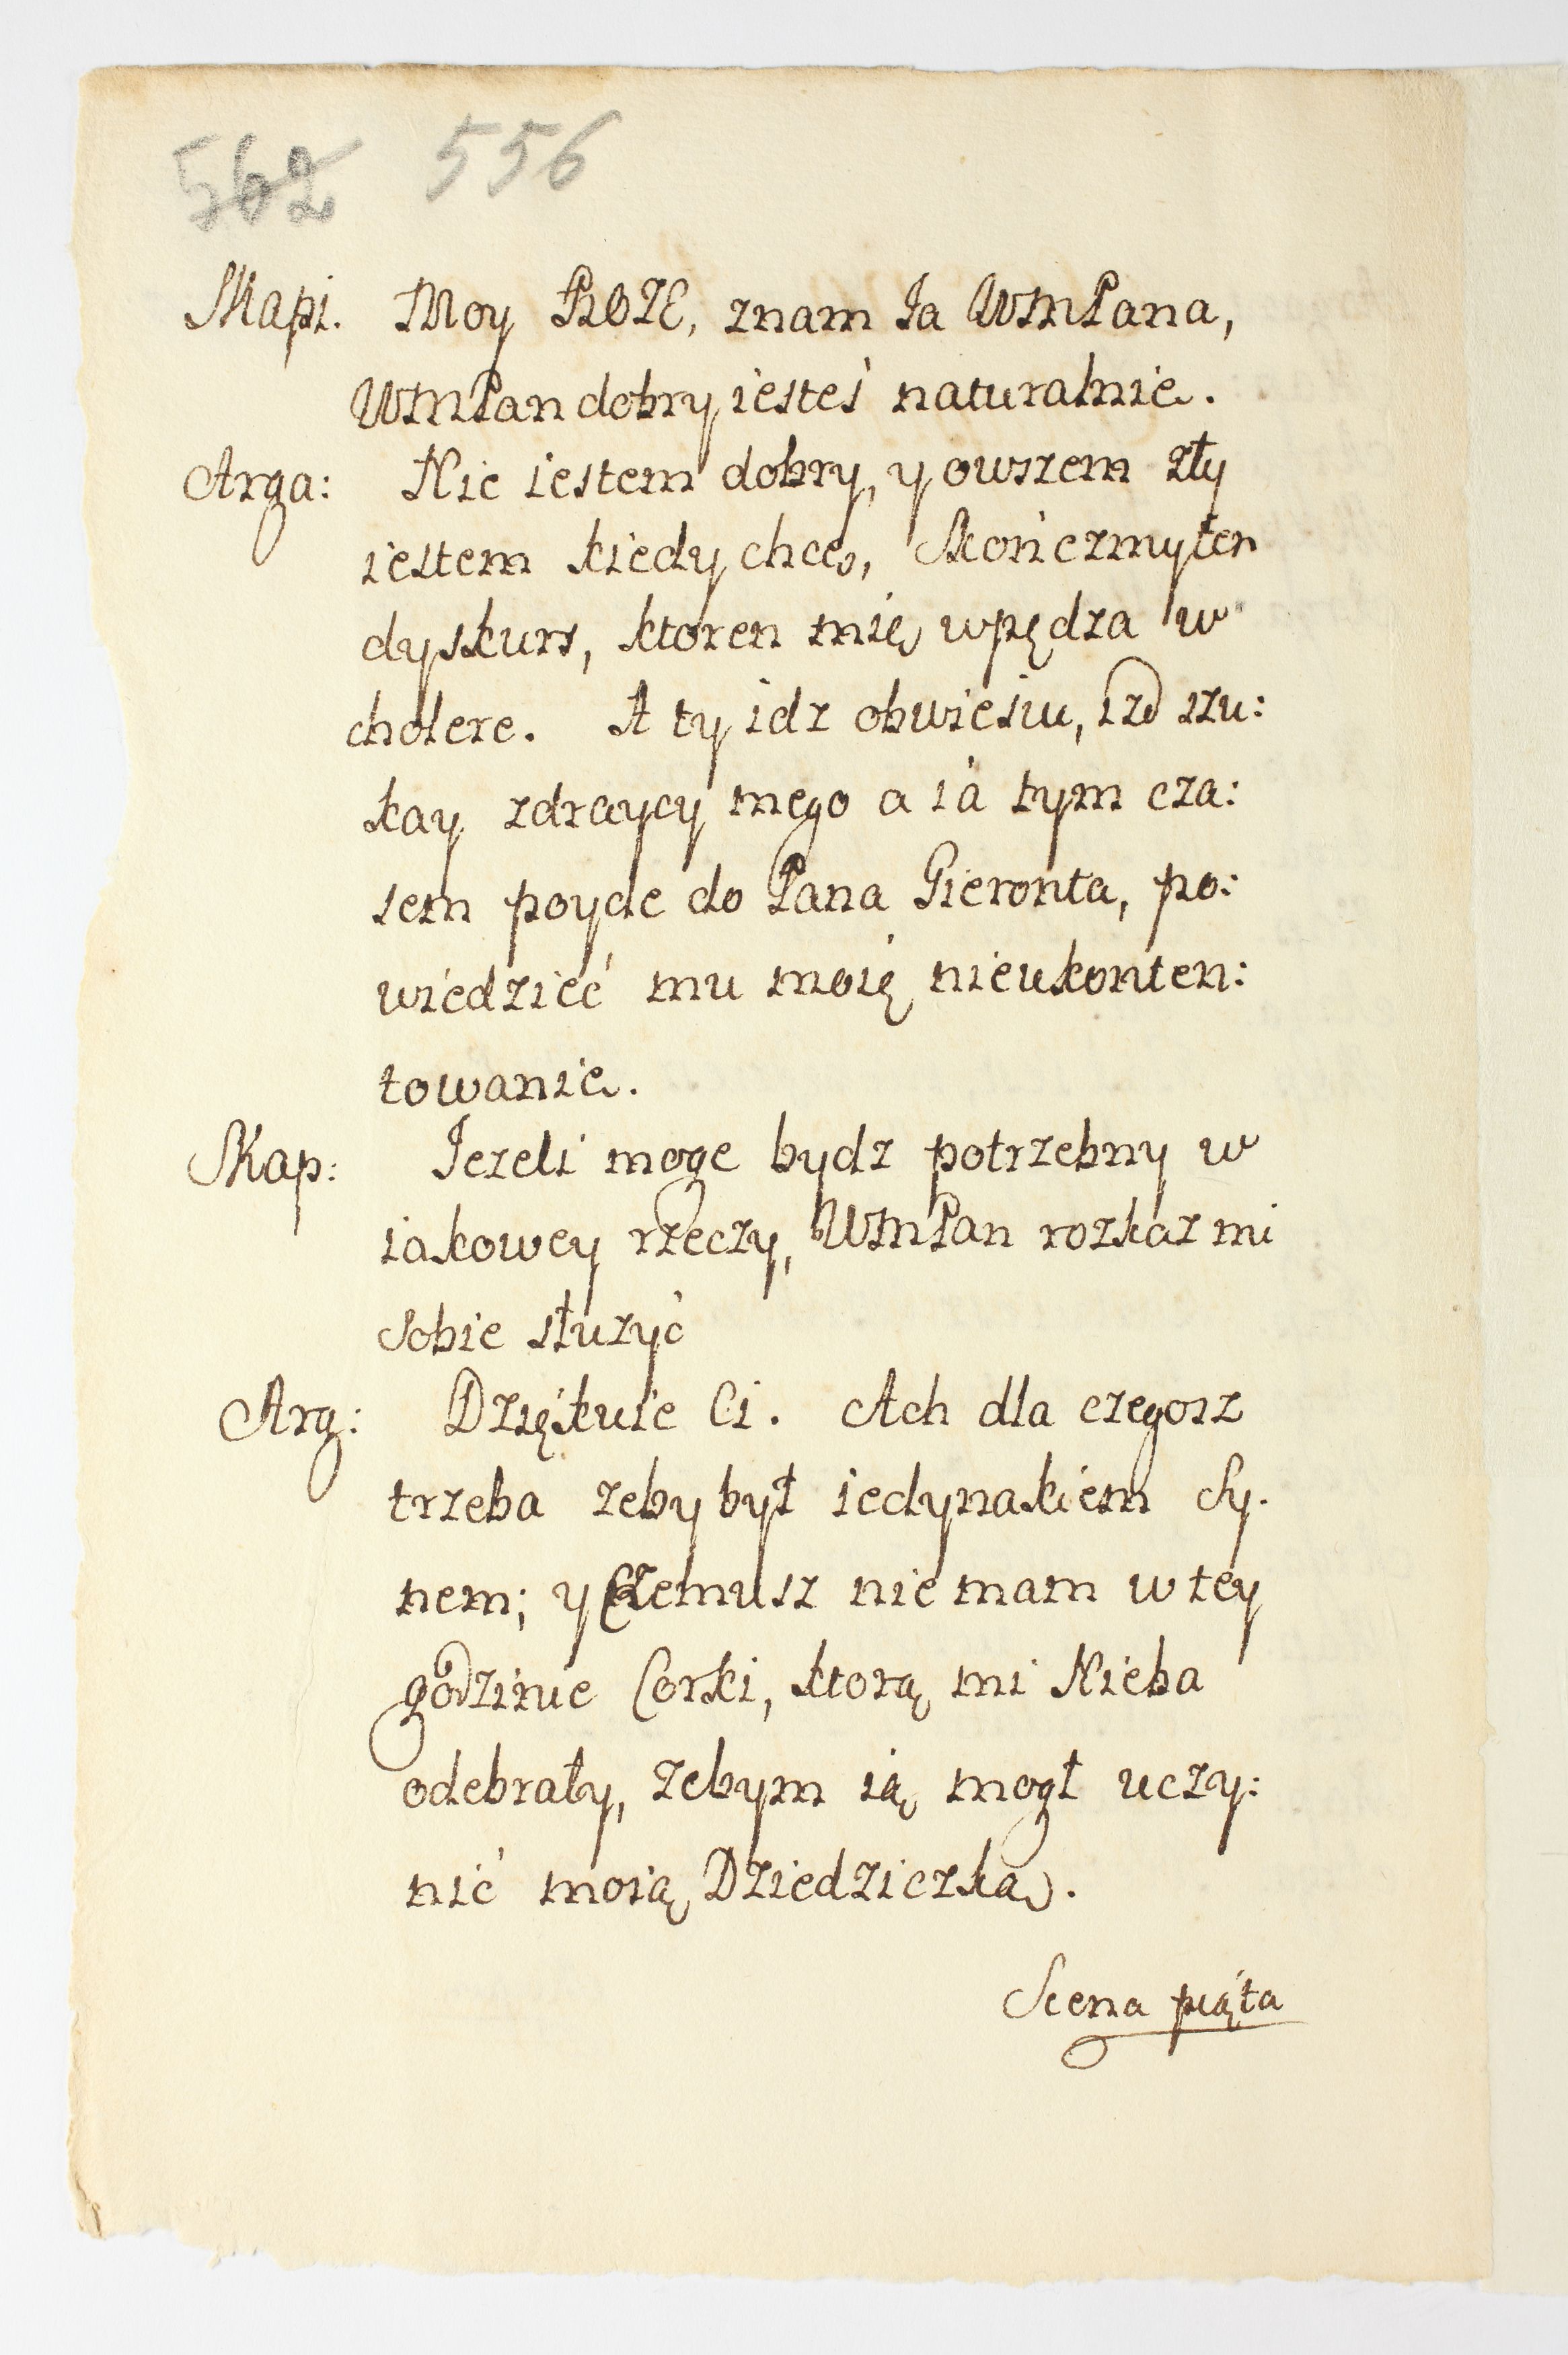 562 556
Skapi. Moy BOZE, znam Ia WMPana,
WMPan dobry iesteś naturalnie.
Arga: Nie iestem dobry, y owszem zły
iestem kiedy chcę, Skończmy ten
dyskurs, ktoren mię wpędza w
cholere. A ty idz obwiesiu, idz szu:
kay zdraycy mego a ia tym cza:
sem poyde do Pana Gieronta, po:
wiedzieć mu moię nieukonten:
towanie.
Skap: Iezeli moge bydz potrzebny w
iakowey rzeczy, WMPan rozkaz mi
sobie słuzyć
Arg: Dziękuie Ci. Ach dla czegosz
trzeba zeby był iedynakiem Sy.
nem; y Czemusz nie mam w tey
godzinie Corki, ktorą mi Nieba
odebrały, zebym ią mogł uczy:
nić moią Dziedziczką.
Scena piąta